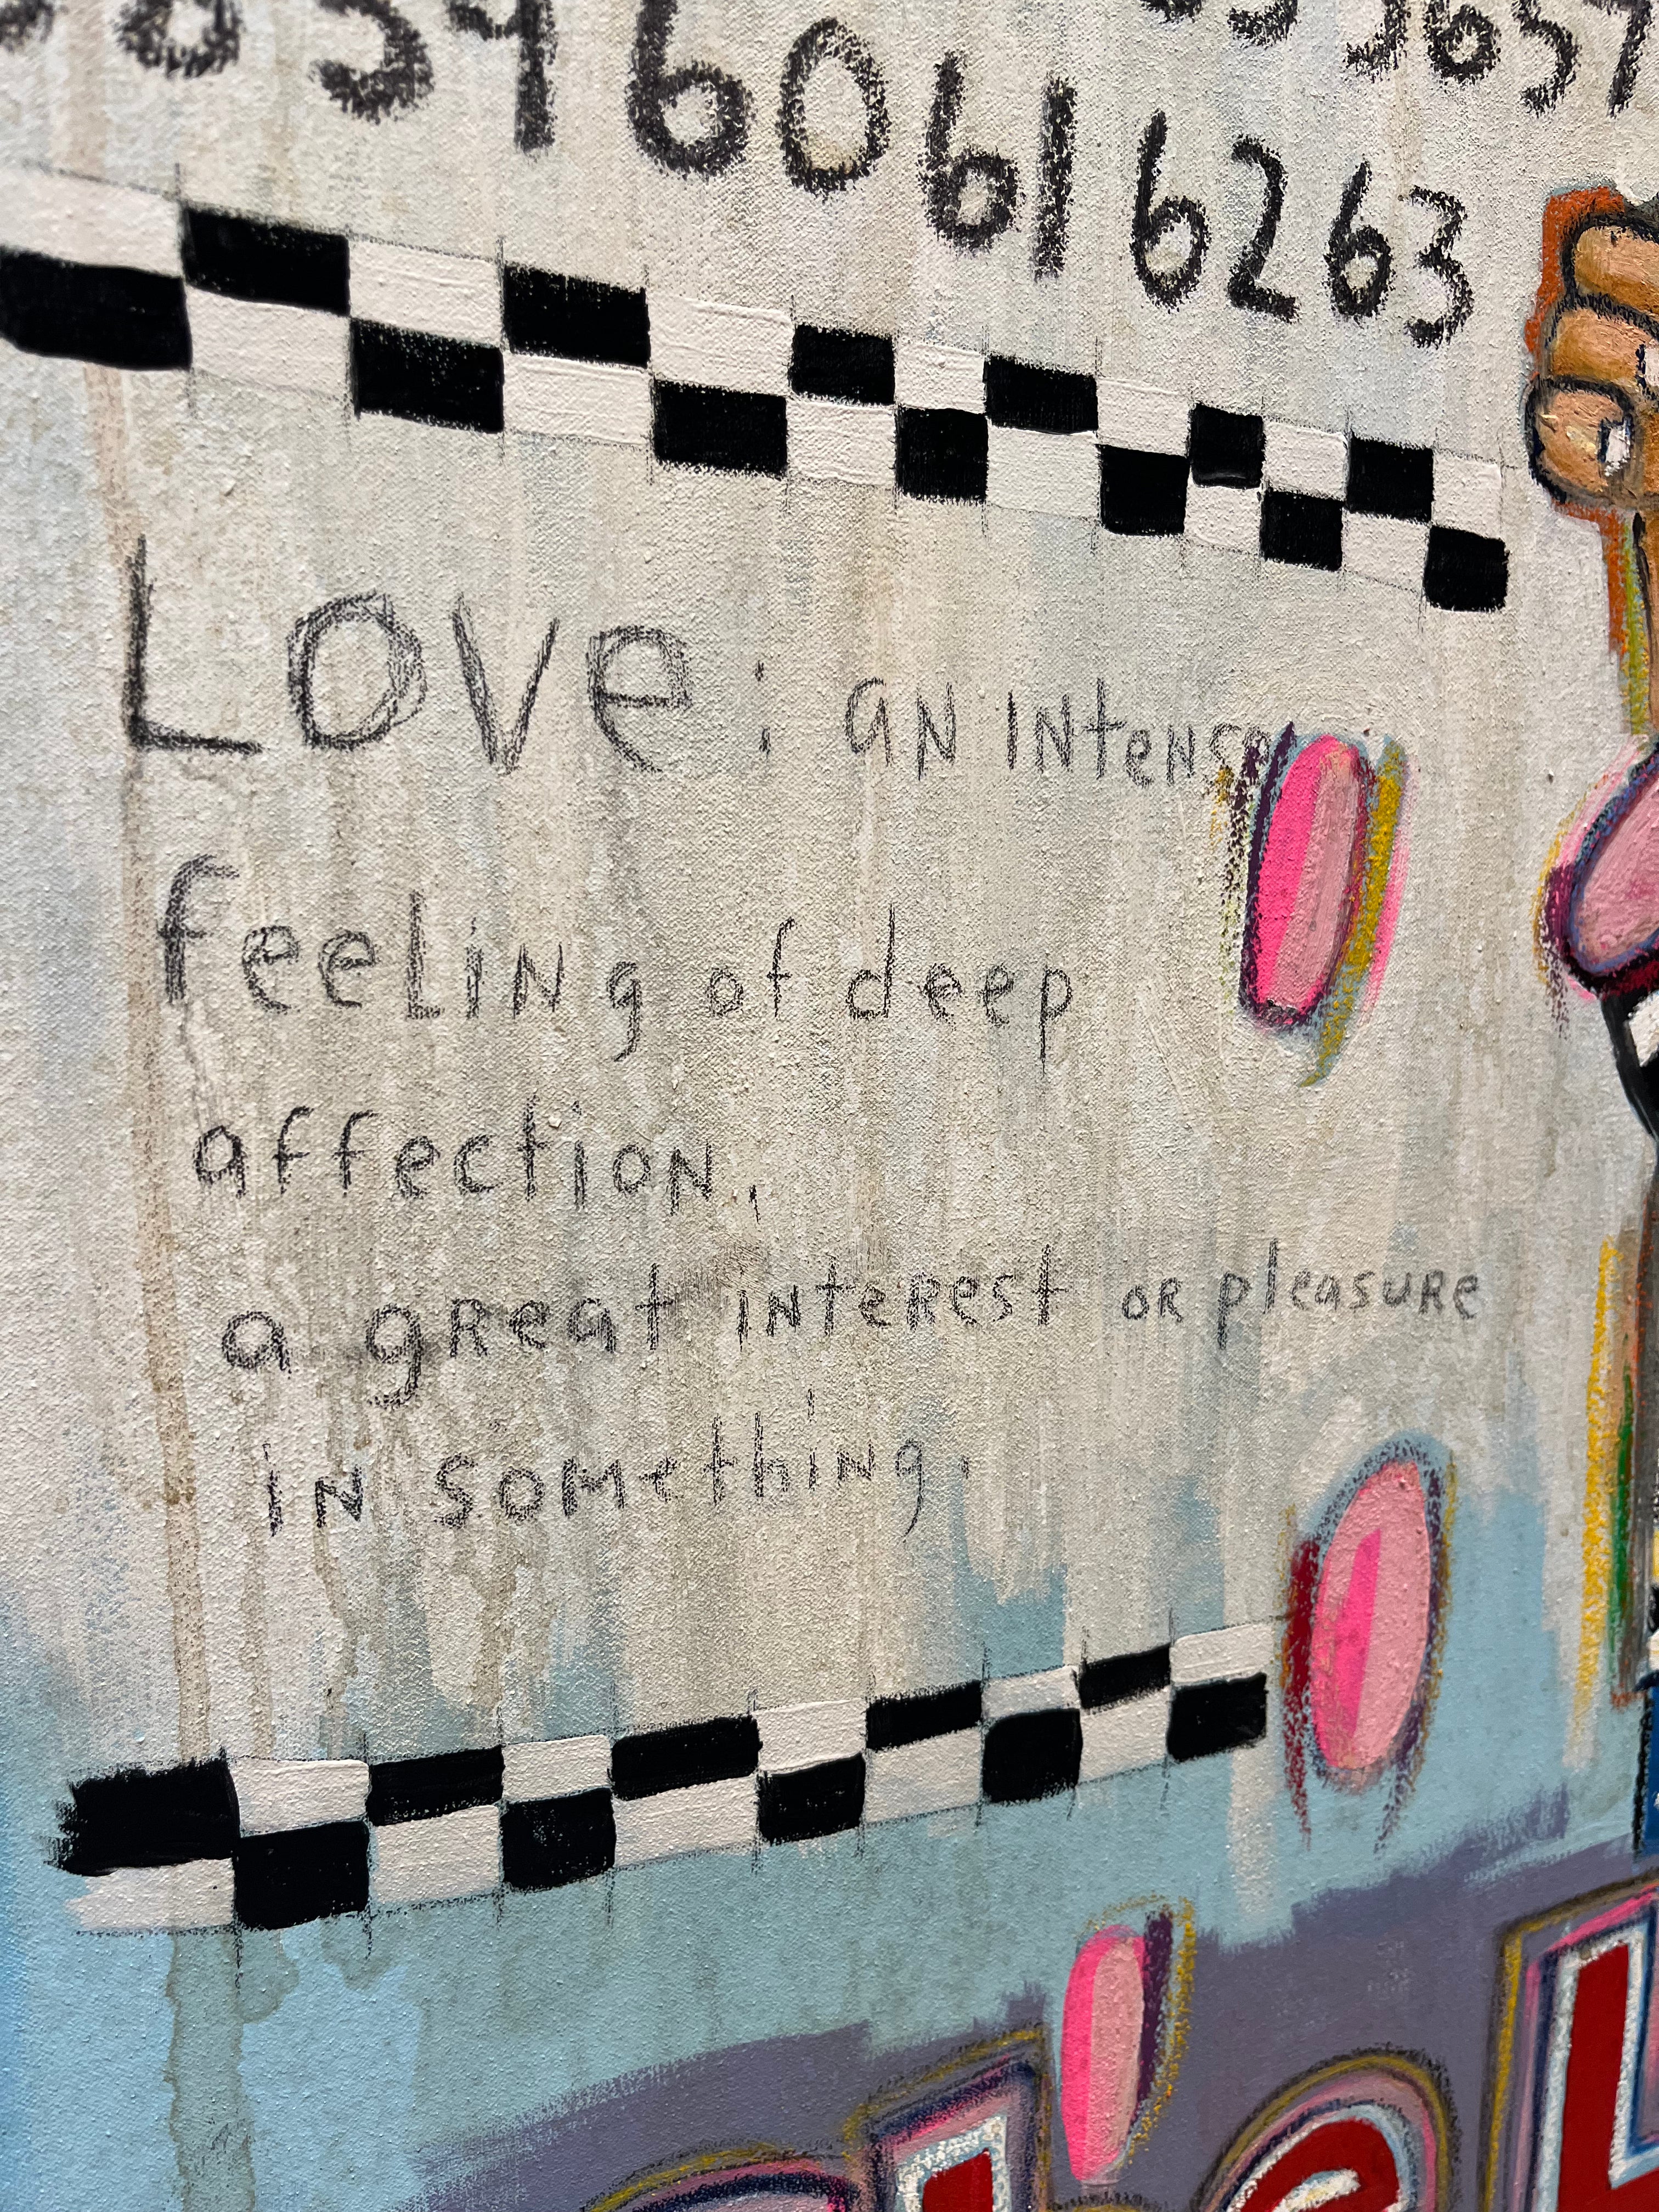 59 60 61 62 63
Love: an intense
feeling of deep
affection,
a great interest or pleasure
in something.